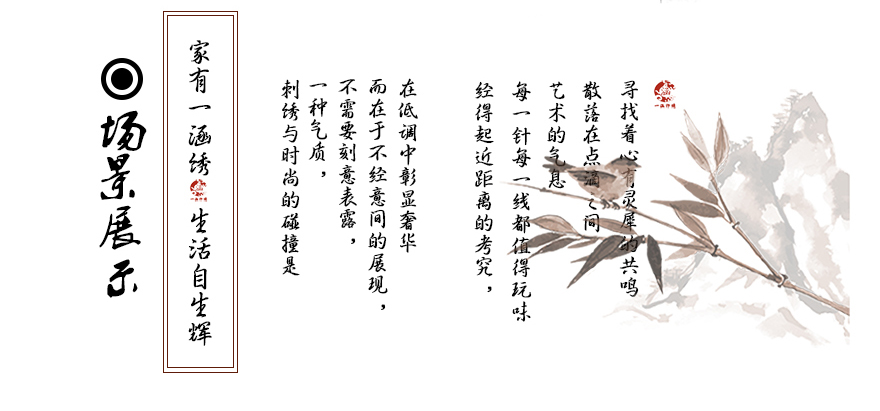 场景展示
家有一涵绣
生活自生辉
刺绣与时尚的碰撞是
一种气质，
不需要刻意表露，
而在于不经意间的展现，
在低调中彰显奢华
经得起近距离的考究，
每一针每一线都值得玩味
艺术的气息
散落在点滴之间
寻找着心有灵犀的共鸣